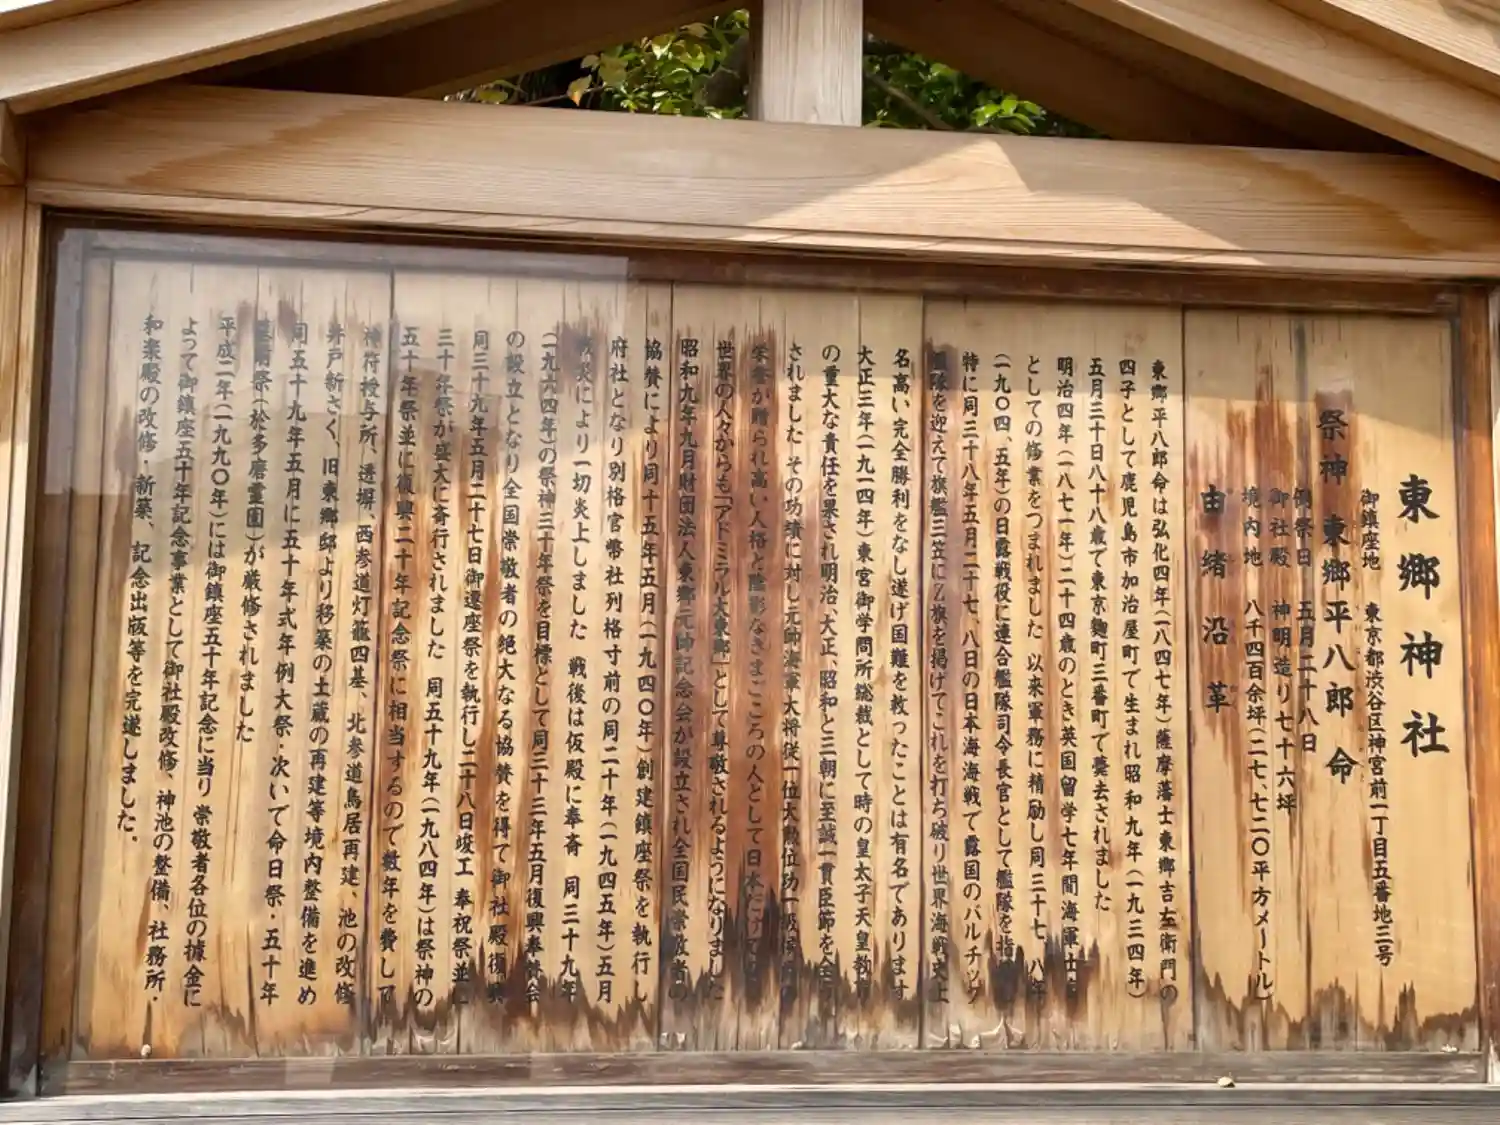 東郷神社
御鎮座地 東京都渋谷区神宮前一丁目五番地三号
祭神 東郷平八郎命
例祭日 五月二十八日
御社殿 神明造り七十六坪
境内地 八千四百余坪(二七、七二〇平方メートル)
由緒沿革
東郷平八郎命は弘化四年(一八四七年)薩摩藩士東郷吉左衛門の
四子として鹿児島市加治屋町で生まれ昭和九年(一九三四年)
五月三十日八十八歳で東京麹町三番町で薨去されました
明治四年(一八七一年)二十四歳のとき英国留学七年間海軍士
としての修業をつまれました 以来軍務に精励し同三十七、八年
(一九〇四、五年)の日露戦役に連合艦隊司令長官として艦隊を指
特に同三十八年五月二十七、八日の日本海海戦で露国のバルチック
艦隊を迎えて旗艦三笠にZ旗を掲げてこれを打ち破り世界海戦史上
名高い完全勝利をなし遂げ国難を救ったことは有名であります
大正三年(一九一四年)東宮御学問所総裁として時の皇太子天皇教育
の重大な責任を果され明治、大正、昭和と三朝に至誠一貫臣節を全う
されました その功績に対し元帥海軍大将従一位大勲位功一級
栄誉が贈られ高い人格と陰影なきまごころの人として日本だけでなく
世界の人々からも「アドミラル大東郷」として尊敬されるようになりました
昭和九年九月財団法人東郷元帥記念会が設立され全国民崇敬者の
協賛により同十五年五月(一九四〇年)創建鎮座祭を執行し
府社となり別格官幣社列格寸前の同二十年(一九四五年)五月
災により一切炎上しました 戦後は仮殿に奉斎 同三十九年
(一九六四年)の祭神三十年祭を目標として同三十三年五月復興奉賛会
の設立となり全国崇敬者の絶大なる協賛を得て御社殿復興
同三十九年五月二十七日御還座祭を執行し二十八日竣工奉祝祭並に
三十年祭が盛大に斎行されました 同五十九年(一九八四年)は祭神の
五十年祭並に復興二十年記念祭に相当するので数年を費して
神符授与所、透塀、西参道灯籠四基、北参道鳥居再建、池の改修
井戸新さく、旧東郷邸より移築の土蔵の再建等境内整備を進め
同五十九年五月に五十年式年例大祭・次いで命日祭・五十年
墓前祭(於多磨霊園)が厳修されました
平成二年(一九九〇年)には御鎮座五十年記念に当り 崇敬者各位の據金に
よって御鎮座五十年記念事業として御社殿改修、神池の整備、社務所・
和楽殿の改修・新築、記念出版等を完遂しました。